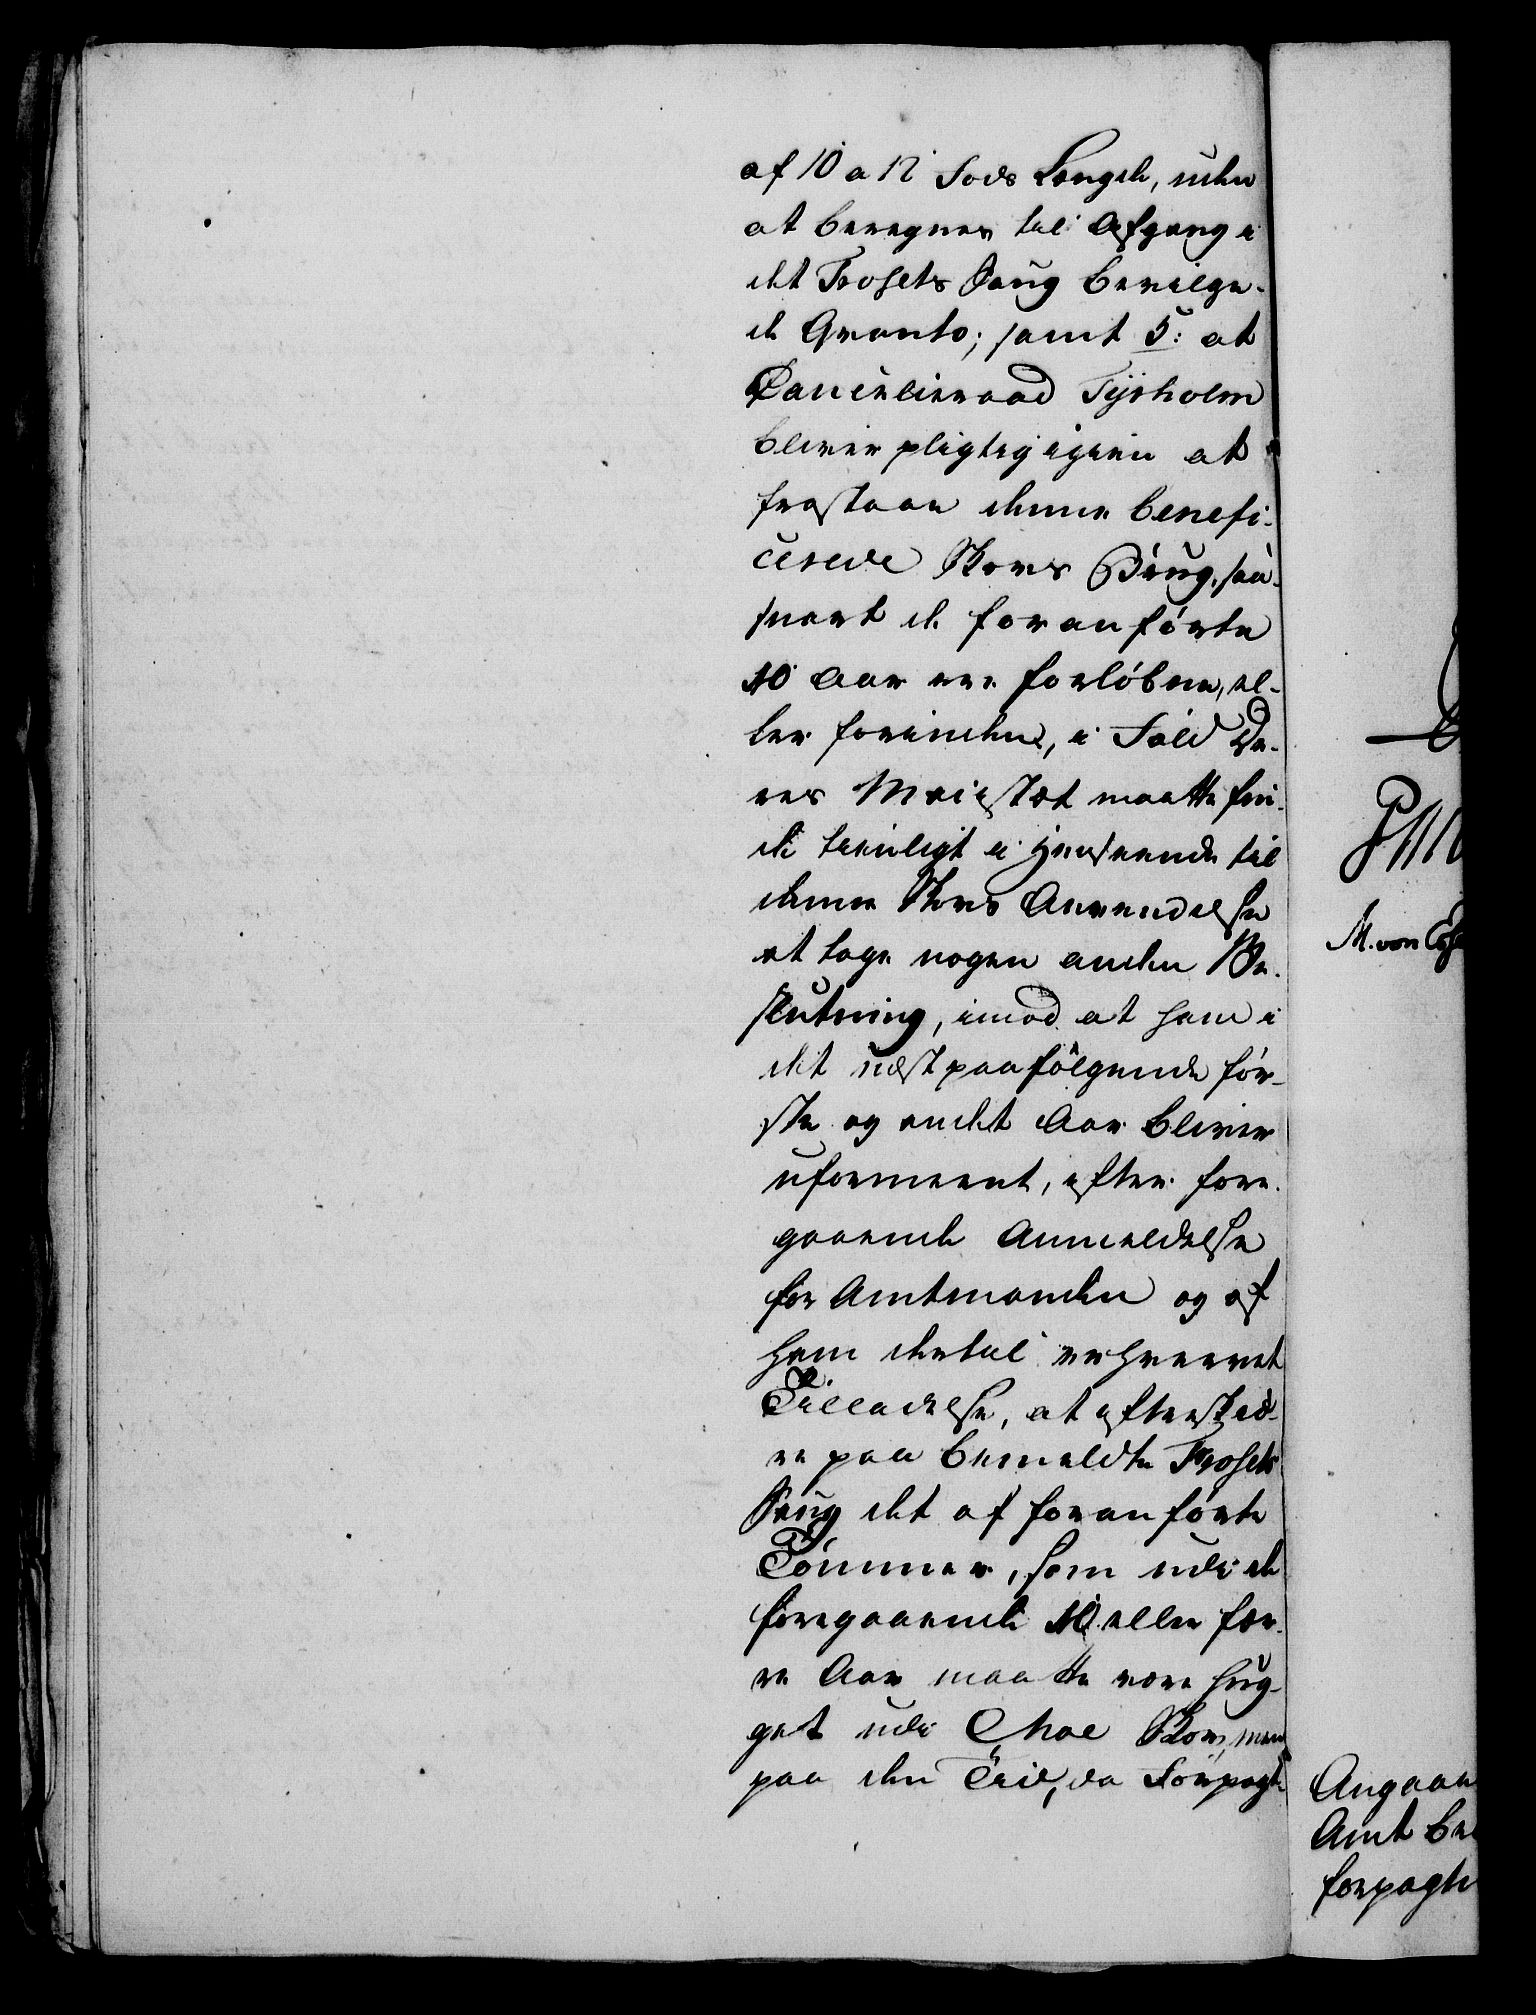 af 10 a 12 Fods Længde, uden
at beregnes til Afgang i
det Frosets Saug bevilge-
de Qvanto; samt 5: at
Cancelieraad Tyrholm
bliver pligtig igien at
frastaae denne benefi-
cerede Skovs Brug, saa-
snart de foranförte
10 Aar ere forløbne, el-
ler forinden, i Fald De-
res Maiestæt maatte fin-
de tienligt i Henseende til
denne Skovs Anvendelse
at tage nogen anden Be-
slutning, imod at ham i
det næstpaafølgende før-
ste og andet Aar bliver
uformeent, efter fore-
gaaende Anmeldelse
for Amtmanden og af
ham dertil erhvervet
Tilladelse, at efterskiæ-
re paa bemeldte Frosets
Saug det af foranførte
Tømmer, som udi de
foregaaende 10 eller fær-
re Aar maatte være hug-
get udi Moe Skov, men
paa den Tiid, da Forpagt-
M. von
Angaae
Amt be
forpagte